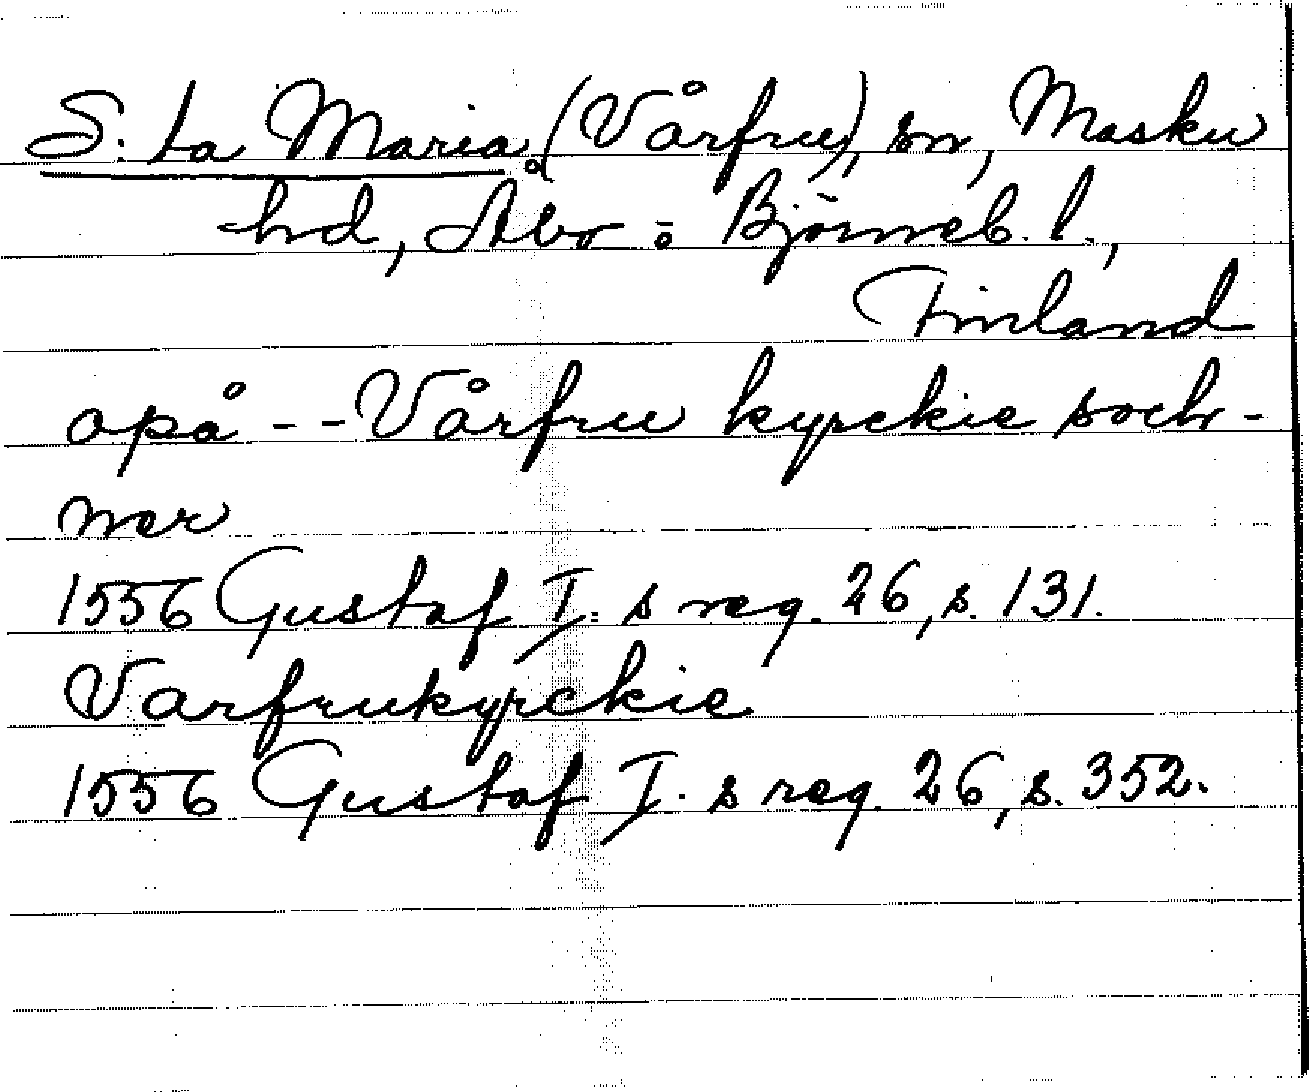 S:ta Maria (Vårfru), sn, Masku
hd, Åbo o Björneb. l.,
Finland
opå -- Vårfru kyrckie soch-
ner
1556 Gustaf I:s reg. 26, s. 131.
Varfrukyrckie
1556 Gustaf I:s reg. 26, s. 352.